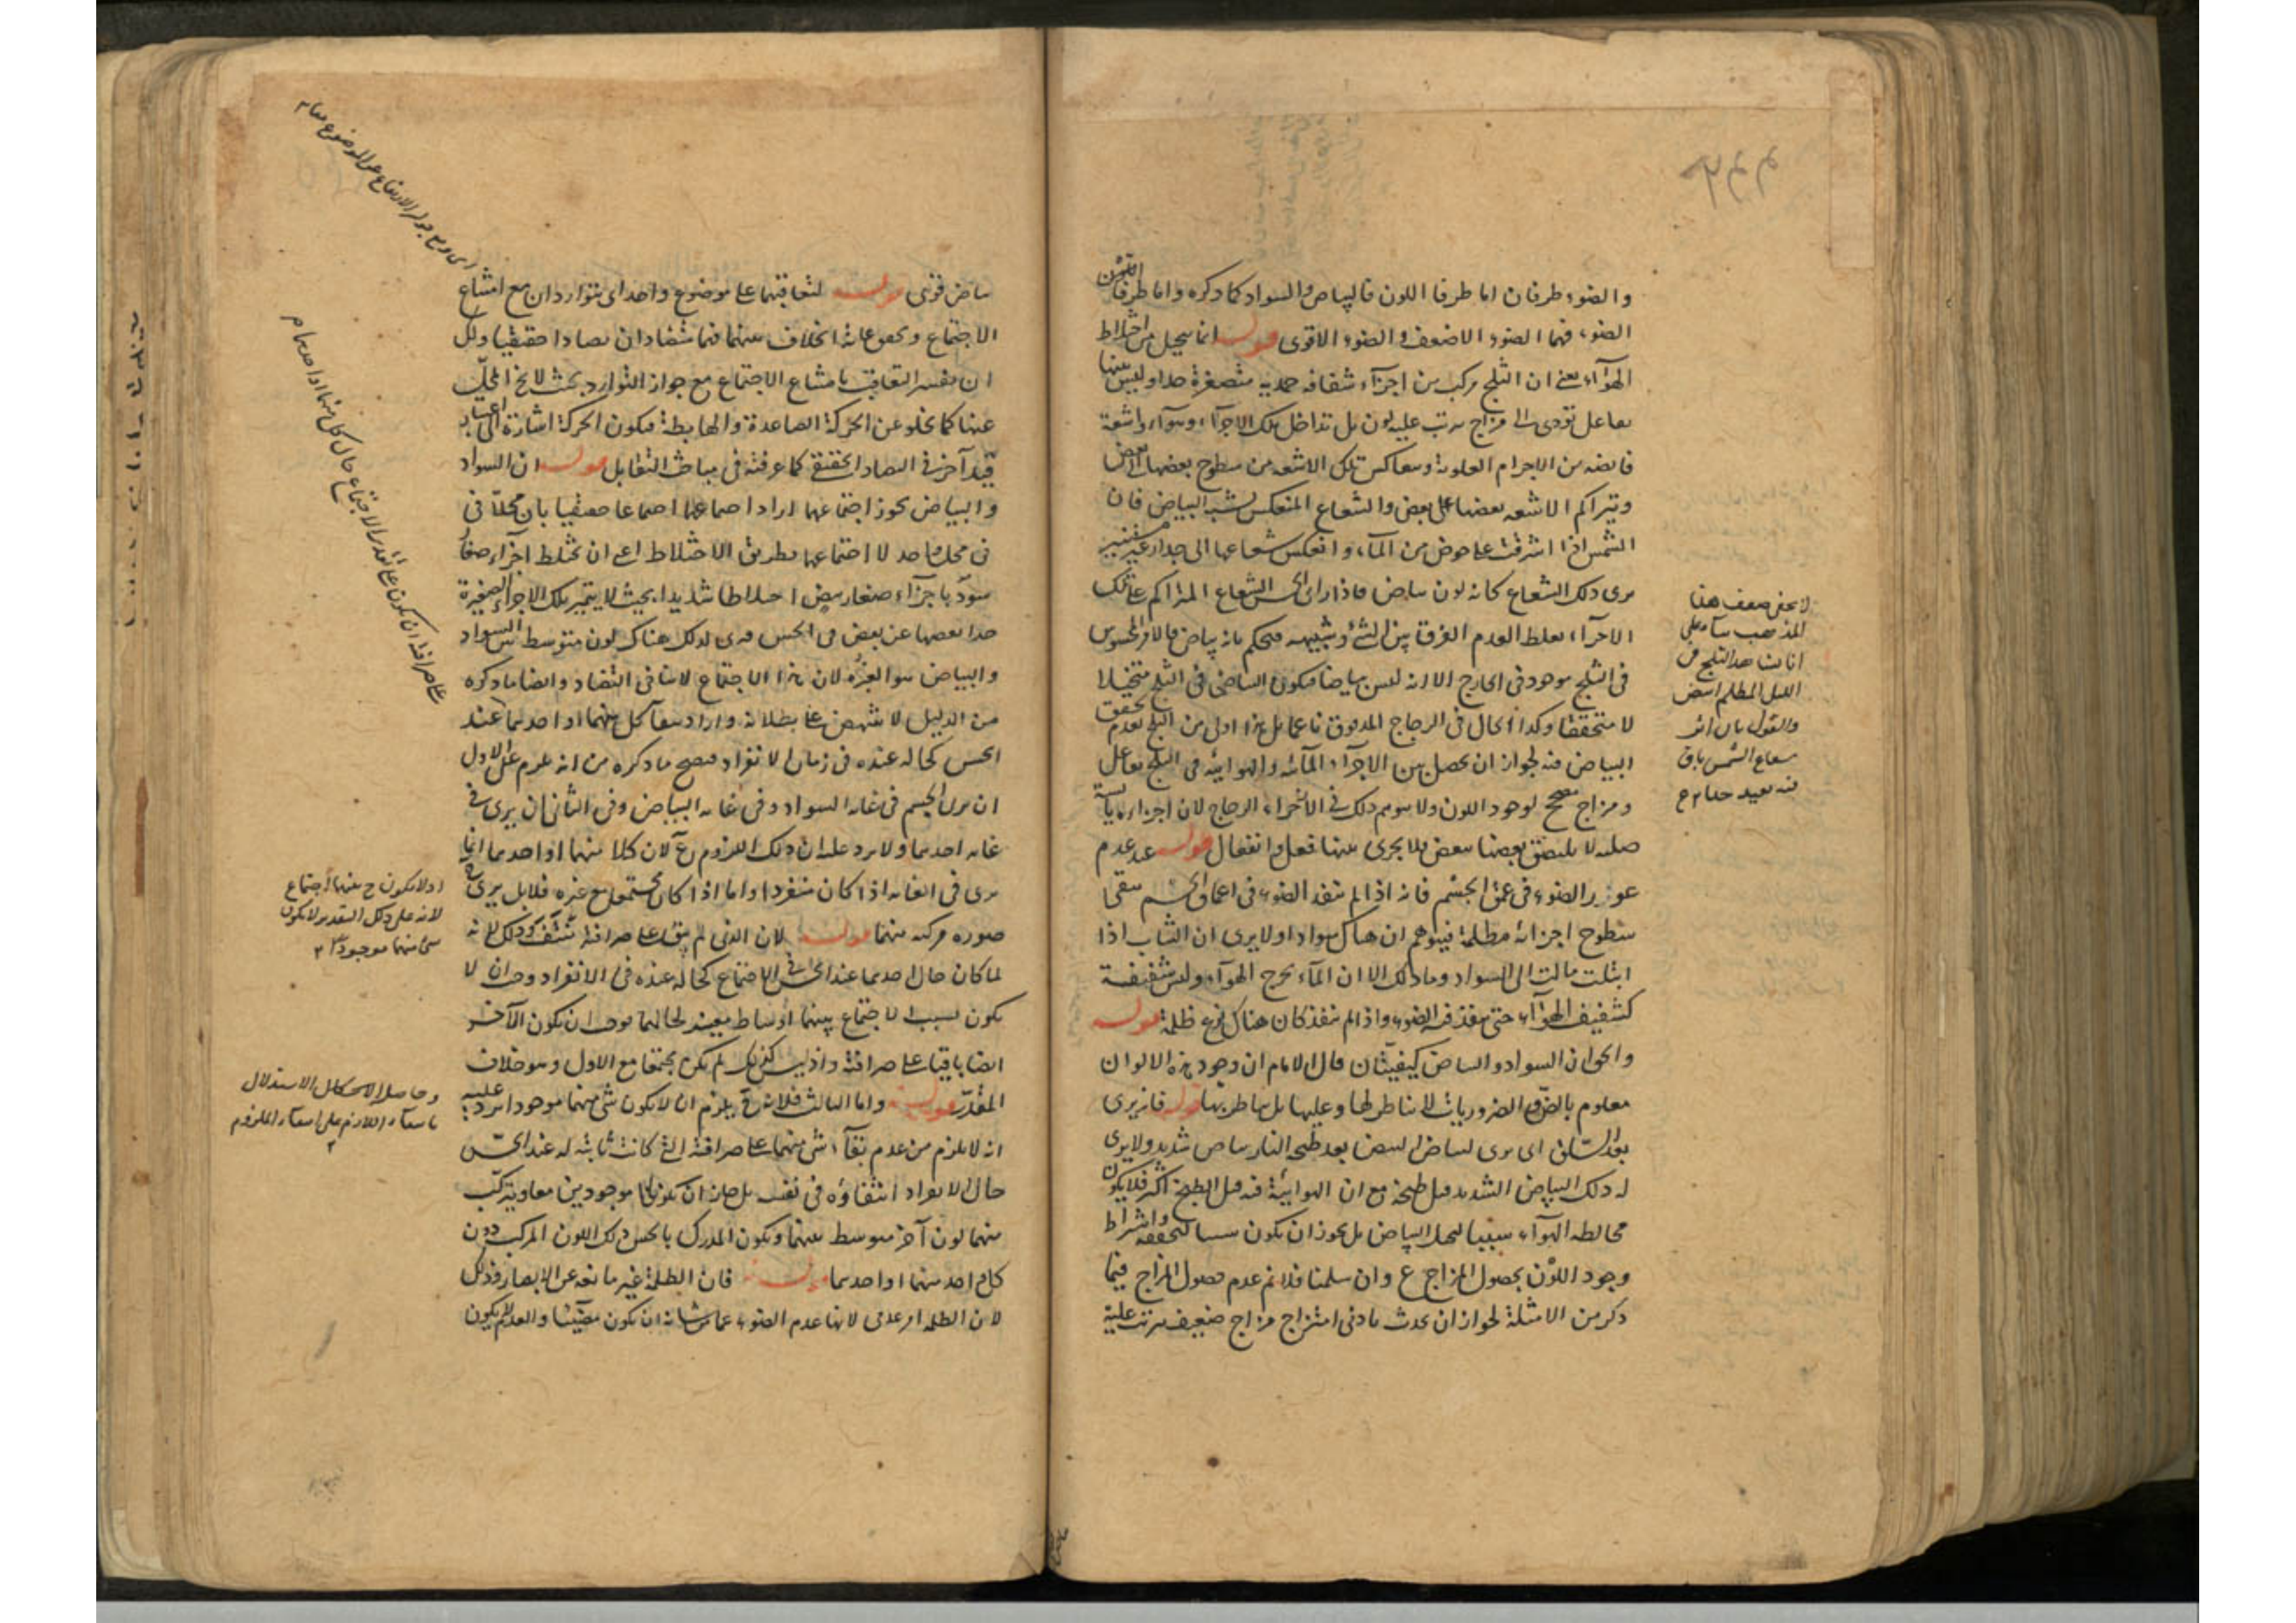 والضوء طرفان اما طرفا اللون فالبياض والسواد كما ذكره واما طرفا
الضوء فهما الضوء الاضعف والضوء الاقوى قوله انما يتخيل من اختلاط
الهواء يعنى ان الثلج مركب من اجزاء شفافة جمدية متصغرة جدا وليس بينها
تفاعل تؤدى الى مزاج يترتب عليه لون بل تداخل تلك الاجزاء وهواء واشعة
فائضة من الاجرام العلوية وتعاكس تلك الاشعة من سطوح بعضها الى بعض
ويتراكم الاشعة بعضها على بعض والشعاع المنعكس يشبه البياض فان
الشمس اذا اشرقت على حوض من الماء وانعكس شعاعها الى جدار غير مستنير
يرى ذلك الشعاع كانه لون بياض فاذا راى الحس الشعاع المتراكم على تلك
الاجزاء يغلط لعدم الفرق بين الشئ وشبيهه فيحكم بانه بياض فالامر المحسوس
فى الثلج موجود فى الخارج الا انه ليس بياضا فيكون البياض فى الثلج متخيلا
لا متحققا وكذا الحال فى الزجاج المدقوق ناعما بل هذا اولى من الثلج بعدم تحقق
البياض فيه لجواز ان يحصل بين الاجزاء المائية والهوائية فى الثلج تفاعل
ومزاج مصحح لوجود اللون ولا يتوهم ذلك فى اجزاء الزجاج لان اجزاءه يابسة
صلبة لا يلتصق بعضها ببعض فلا يجرى بينها فعل وانفعال قوله عند عدم
غور الضوء فى عمق الجسم فانه اذا لم ينفذ الضوء فى اعماق الجسم يبقى
سطوح اجزائه مظلمة فيتوهم ان هناك سوادا اولا يرى ان الثياب اذا
ابتلت مالت الى السواد وما ذلك الا ان الماء يخرج الهواء وليس شفيفه
كشفيف الهواء حتى ينفذ فيه الضوء واذا لم ينفذ كان هناك نوع ظلمة قوله
والحق ان السواد والبياض كيفيتان قال الامام ان وجود هذه الالوان
معلوم بالضرورة والضروريات لا يناظر لها وعليها بل يناظر بها قوله فانه يرى
اى يرى لبياض البيض بعد طبخه بالنار بياض شديد ولا يرى
له ذلك البياض الشديد قبل طبخه مع ان الهوائية فيه قبل الطبخ اكثر فلا يكون
مخالطة الهواء سببا لتخيل البياض بل يجوز ان يكون سببا لتحققه واشتراط
وجود اللون بحصول المزاج ع وان سلمنا فلا نم عدم حصول المزاج فيما
ذكر من الامثلة لجواز ان يحدث بادنى امتزاج مزاج ضعيف يترتب عليه
لا يخفى ضعف هذا
المذهب بناء على
انا نشاهد الثلج فى
الليل المظلم ابيض
والقول بان اثر
شعاع الشمس باق
فيه بعيد جدا
بياض قوى قوله لتعاقبهما على موضوع واحد اى يتواردان مع امتناع
الاجتماع وتحقق غاية الخلاف بينهما فهما متضادان تضادا حقيقيا ولك
ان تفسر التعاقب بامتناع الاجتماع مع جواز التوارد بحيث لا يخ المحل
عنهما كما يخلو عن الحركة الصاعدة والهابطة فيكون الحركة اشارة الى اعتبار
قيد آخر فى التضاد الحقيقى كما عرفته فى مباحث التقابل قوله ان السواد
والبياض يجوز اجتماعهما اراد اجتماعهما اجتماعا حقيقيا بان يحلا فى
فى محل واحد لا اجتماعهما بطريق الاختلاط اعنى ان يختلط اجزاء صغار
سود باجزاء صغار بيض اختلاطا شديدا بحيث لا يتميز تلك الاجزاء الصغيرة
جدا بعضها عن بعض فى الحس فيرى لذلك هناك لون متوسط بين السواد
والبياض هو الغبرة لان هذا الاجتماع لا ينافى التضاد وايضا ما ذكره
من الدليل لا ينهض على بطلانه واراد ببقاء كل منهما او احدهما عند
الحس كحاله عنده فى زمان الانفراد فيصح ما ذكره من انه يلزم على الاول
ان يرى الجسم فى غاية السواد وفى غاية البياض وفى الثانى ان يرى فى
غاية احدهما ولا يرد عليه ان ذلك اللزوم ع لان كلا منهما او احدهما انما
يرى فى الغاية اذا كان منفردا واما اذا كان مجتمعا مع غيره فلا بل يرى فى
صورة مركبة منهما قوله لان الذى لم يبق على صرافته منتف وذلك لانه
لما كان حال احدهما عند الحس فى الاجتماع كحاله عنده فى الانفراد وجب ان لا
يكون بسبب الاجتماع بينهما اوساط مغيرة لحالهما فوجب ان يكون الآخر
ايضا باقيا على صرافته واذ ليس كذلك لم يكن مجتمعا مع الاول وهو خلاف
المقدر قوله واما الثالث فلانه ح يلزم ان لا يكون شئ منهما موجودا يرد عليه
انه لا يلزم من عدم بقاء شئ منهما على صرافته التى كانت ثابتة له عند الحس
حال الانفراد انتفاؤه فى نفسه بل جاز ان يكونا موجودين معا ويتركب
منهما لون آخر متوسط بينهما ويكون المدرك بالحس ذلك اللون المركب دون
كل واحد منهما او احدهما قوله فان الظلمة غير مانعة عن الابصار وذلك
لان الظلمة امر عدمى لانها عدم الضوء عما من شانه ان يكون مضيئا والعدم لا يكون
على صرافته ان يكون على تقدير الاجتماع حال كل منهما او احدهما
اذ لا يكون ح بينهما اجتماع
لانه على ذلك التقدير لا يكون
شئ منهما موجودا
وحاصل الاشكال الاستدلال
بانتفاء اللازم على انتفاء الملزوم